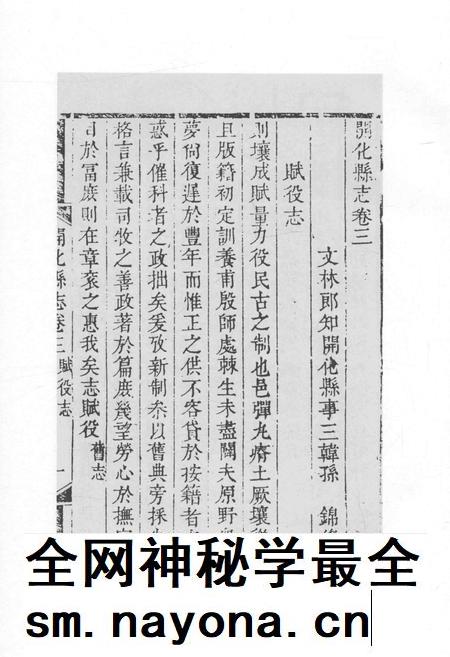 開化縣志卷三
文林郎知開化縣事三韓孫 錦
賦役志
則壤成賦量力役民古之制也邑彈丸瘠土厥壤
且版籍初定訓養甫殷師處棘生未盡闢夫原野
夢尙復遲於豐年而惟正之供不容貸於按籍者
惑乎催科者之政拙矣爰攷新制叅以舊典旁採
格言兼載司牧之善政著於篇庻幾望勞心於撫
司於冨庻則在章衮之惠我矣志賦役 舊志
開化縣志卷三 賦役志 一
全网神秘学最全
sm.nayona.cn